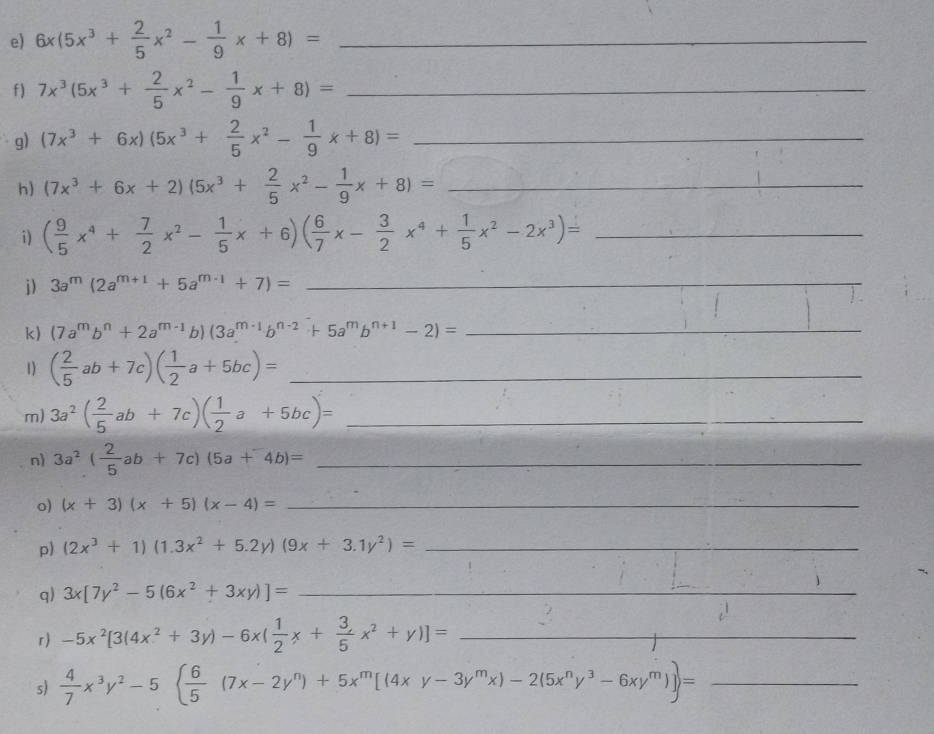 e) 6x(5x³ + 2/5 x² − 1/9 x + 8) = ____
f) 7x³(5x³ + 2/5 x² − 1/9 x + 8) = ____
g) (7x³ + 6x)(5x³ + 2/5 x² − 1/9 x + 8) = ____
h) (7x³ + 6x + 2)(5x³ + 2/5 x² − 1/9 x + 8) = ____
i) (9/5 x⁴ + 7/2 x² − 1/5 x + 6)(6/7 x − 3/2 x⁴ + 1/5 x² − 2x³) = ____
j) 3aᵐ (2aᵐ⁺¹ + 5aᵐ⁻¹ + 7) = ____
k) (7aᵐbⁿ + 2aᵐ⁻¹b)(3aᵐ⁻¹bⁿ⁻² + 5aᵐbⁿ⁺¹ − 2) = ____
l) (2/5 ab + 7c)(1/2 a + 5bc) = ____
m) 3a² (2/5 ab + 7c)(1/2 a + 5bc) = ____
n) 3a² (2/5 ab + 7c) (5a + 4b) = ____
o) (x + 3) (x + 5) (x − 4) = ____
p) (2x³ + 1) (1.3x² + 5.2y) (9x + 3.1y²) = ____
q) 3x[7y² − 5(6x² + 3xy)] = ____
r) −5x²[3(4x² + 3y) − 6x(1/2 x + 3/5 x² + y)] = ____
s) 4/7 x³y² − 5 {6/5 (7x − 2yⁿ) + 5xᵐ[(4x y − 3yᵐx) − 2(5xⁿy³ − 6xyᵐ)]} = ____